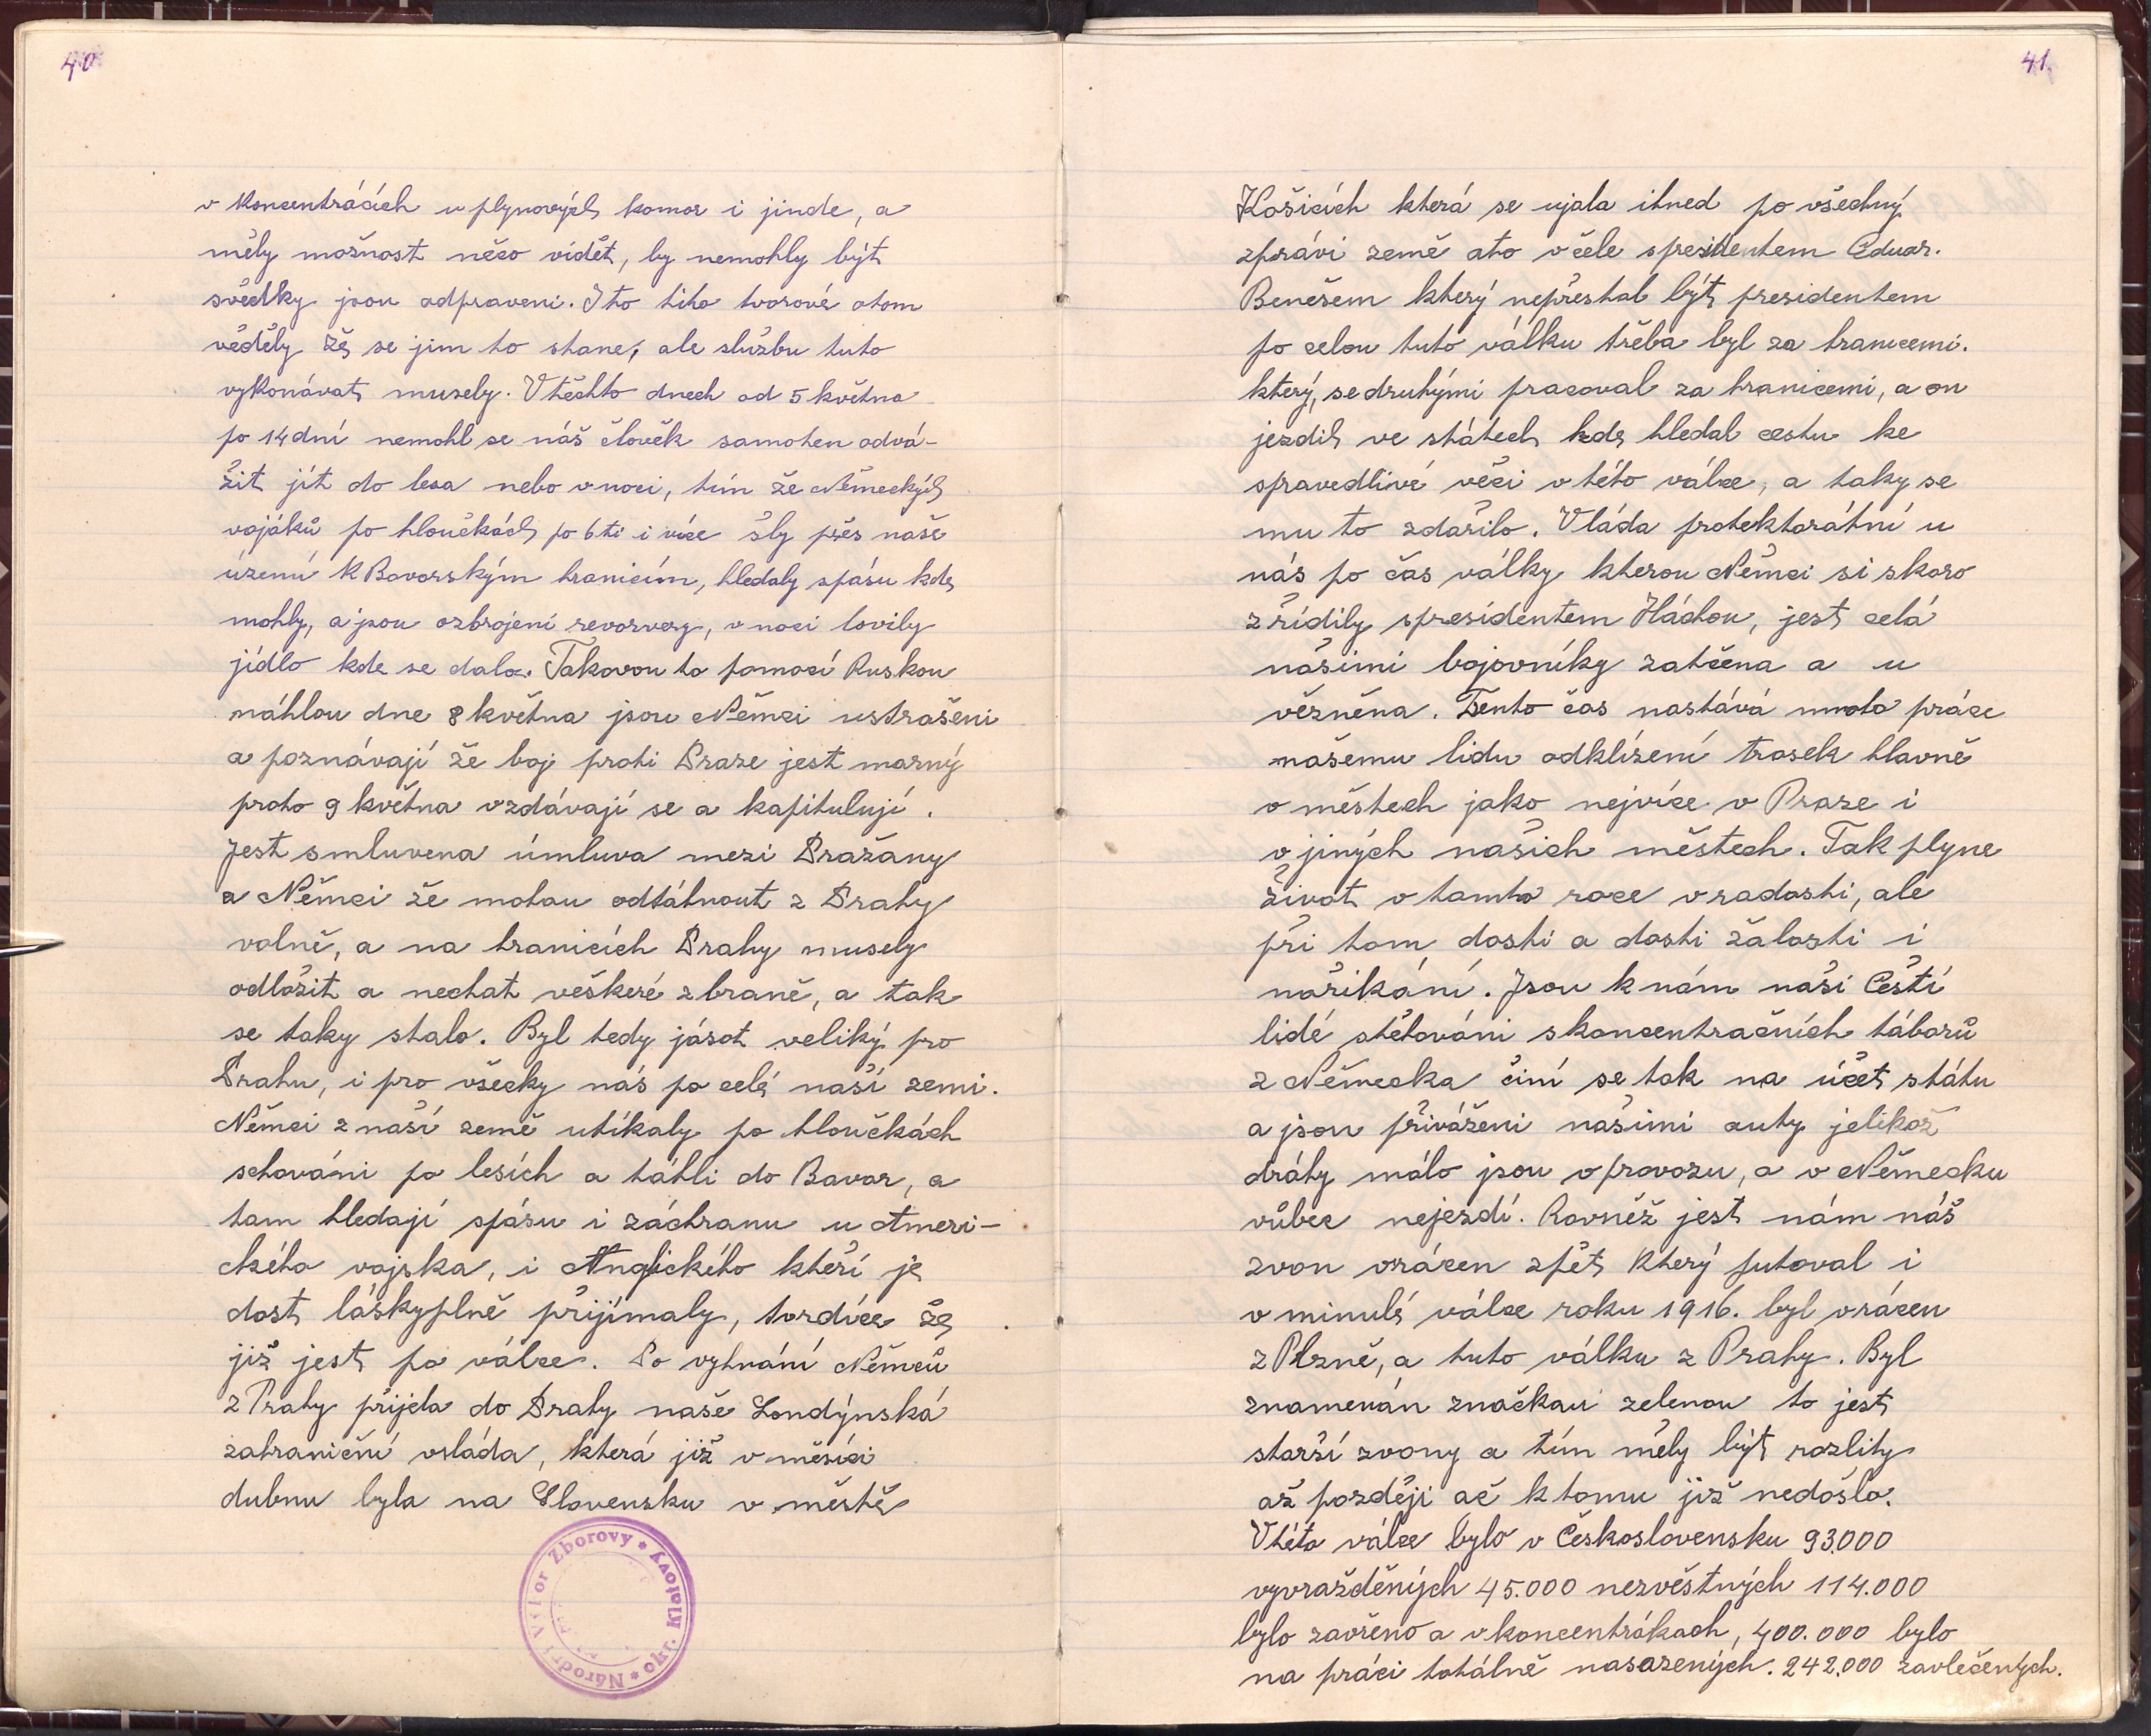 40
v koncentrácích u plynových komor i jinde, a
měly možnost něco vidět, by nemohly být
svědky jsou odpraveni. I to tito tvorové otom
věděly že se jim to stane, ale službu tuto
vykonávat musely. Vtěchto dnech od 5 května
po 14 dní nemohl se náš člověk samoten odvá-
žit jít do lesa nebo vnoci, tím že Německých
vojáků po hloučkách po 6ti i více šly přes naše
území k Bavorským hranicím, hledaly spásu kde
mohly, a jsou ozbrojeni revorvery, vnoci lovily
jídlo kde se dalo. Takovou to pomocí Ruskou
náhlou dne 8 května jsou Němci ustrašeni
a poznávají že boj proti Praze jest marný
proto 9 května vzdávají se a kapitulují.
Jest smluvena úmluva mezi Pražany
a Němci že mohou odtáhnout z Prahy
volně, a na hranicích Prahy musely
odložit a nechat veškeré zbraně, a tak
se taky stalo. Byl tedy jásot veliký pro
Prahu, i pro všecky nás po celé naší zemi.
Němci z naší země utíkaly po hloučkách
schováni po lesích a táhli do Bavor, a
tam hledají spásu i záchranu u Ameri-
ckého vojska, i Anglického kteří je
dost láskyplně přijímaly, tvrdíce že
již jest po válce. Po vyhnání Němců
z Prahy přijela do Prahy naše Londýnská
zahraniční vláda, která již v měsíci
dubnu byla na Slovensku v městě
Národní Výbor Zborovy * okr. Klatovy *
41
Košicích která se ujala ihned po všechný
zprávi země ato včele spresidentem Eduar.
Benešem který nepřestal být presidentem
po celou tuto válku třeba byl za hranicemi.
který, sedruhými pracoval za hranicemi, a on
jezdil ve státech kde hledal cestu ke
spravedlivé věci v této válce, a taky se
mu to zdařilo. Vláda protektorátní u
nás po čas války kterou Němci si skoro
zřídily spresidentem Háchou, jest celá
našimi bojovníky zatčena a u
vězněna. Tento čas nastává mnoho práce
našemu lidu odklízení trosek hlavně
v městech jako nejvíce v Praze i
v jiných našich městech. Tak plyne
život v tomto roce vradosti, ale
při tom dosti a dosti žalosti i
nařikání. Jsou k nám naši Čeští
lidé stěhováni skoncentračních táborů
z Německa činí se tak na účet státu
a jsou přiváženi našimi auty jelikož
dráhy málo jsou vprovozu, a v Německu
vůbec nejezdí. Rovněž jest nám náš
zvon vrácen zpět který putoval i
v minulé válce roku 1916. byl vrácen
z Plzně, a tuto válku z Prahy. Byl
znamenán značkou zelenou to jest
starší zvony a tím měly být rozlity
až později ač k tomu již nedošlo.
Vtéto válce bylo v Československu 93.000
vyvražděných 45.000 nezvěstných 114.000
bylo zavřeno a vkoncentrákach, 400.000 bylo
na práci totálně nasazených. 242.000 zavlečených.